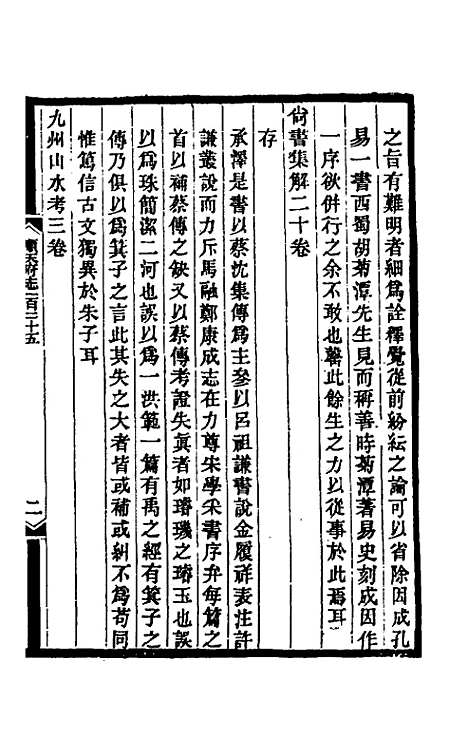 之旨有難明者細爲詮釋覺從前紛紜之論可以省除因成孔
易一書西蜀胡菊潭先生見而稱善時菊潭著易史刻成因作
一序欲併行之余不敢也罄此餘生之力以從事於此焉耳
尙書集解二十卷
存
承澤是書以蔡沈集傳爲主參以呂祖謙書說金履祥表注許
謙叢說而力斥馬融鄭康成志在力尊宋學采書序弁每篇之
首以補蔡傳之缺又以蔡傳考證失眞者如璿璣之璿玉也誤
以爲珠簡潔二河也誤以爲一洪範一篇有禹之經有箕子之
傳乃俱以爲箕子之言此其失之大者皆或補或糾不爲苟同
惟篤信古文獨異於朱子耳
九州山水考三卷
順天府志一百二十五
二